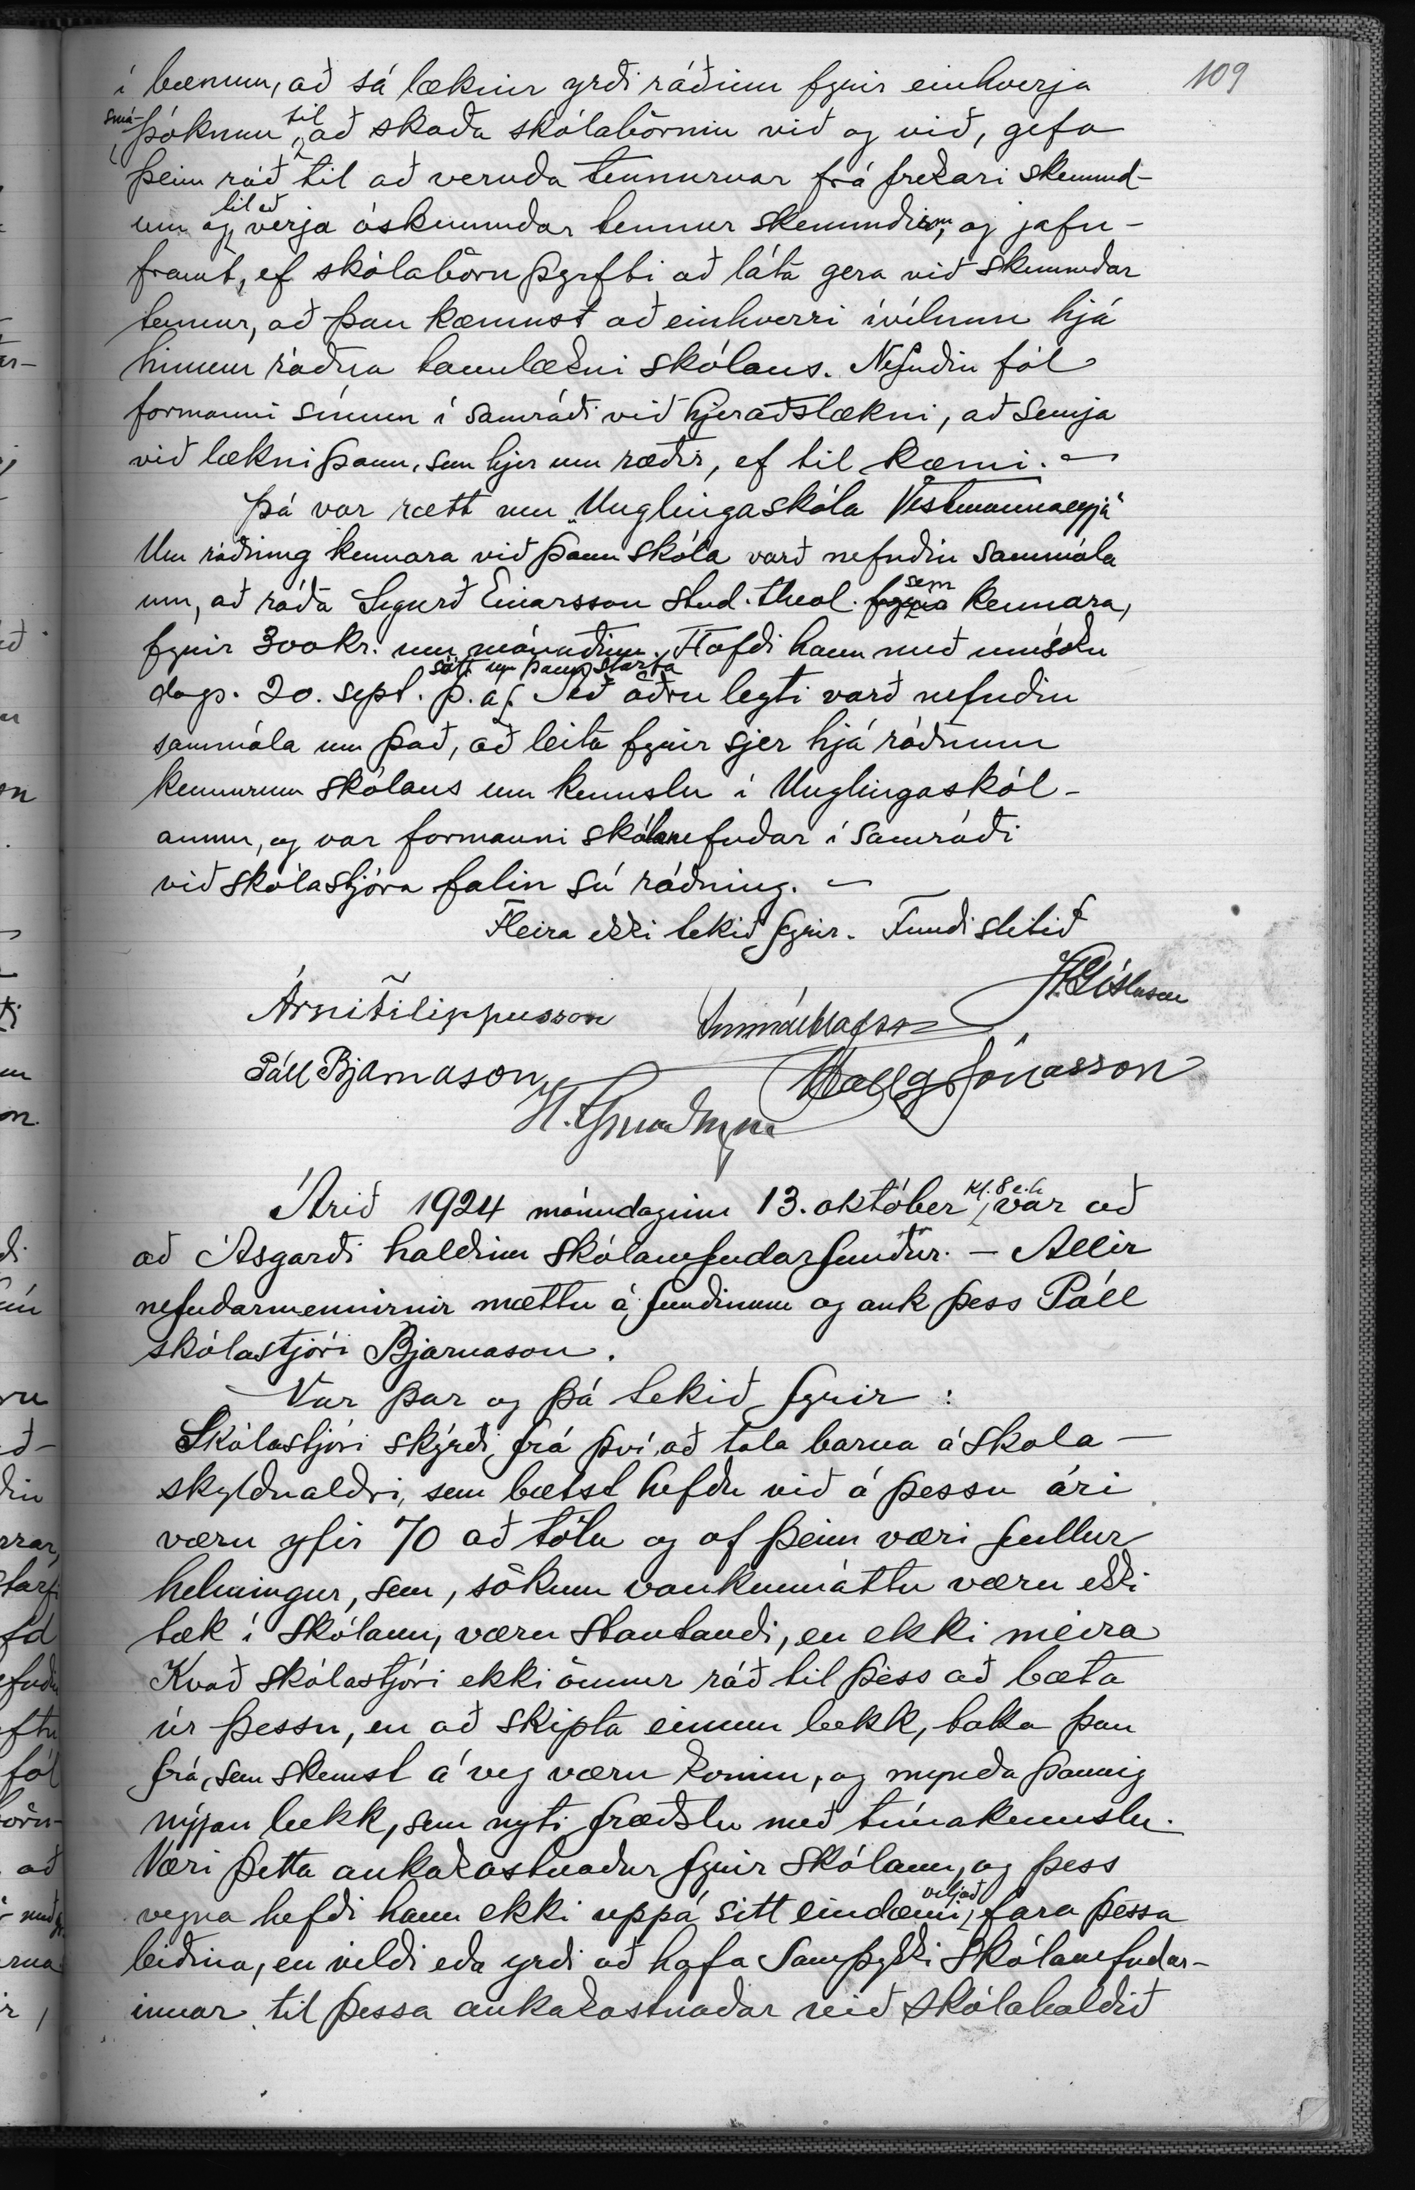 109
í bænum, að sá læknir yrði ráðinn fyrir einhverja
smá-þóknun til að skoða skólabörnin við og við, gefa
þeim ráð til að vernda tennurnar frá frekari skemmd-
um og til að verja óskemmdar tennur skemmdum, og jafn-
framt, ef skólabörn þyrfti að láta gera við skemmdar
tennur, að þau kæmust að einhverri ívilnun hjá
hinum ráðna tannlækni skólans. Nefndin fól
formanni sínum í samráði við hjeraðslækni, að semja
við lækni þann, sem hjer um ræðir, ef til kæmi. —
Þá var rætt um „Unglingaskóla Vestmannaeyja"
Um ráðning kennara við þann skóla varð nefndin sammála
um, að ráða Sigurð Einarsson stud. theol. sem kennara,
fyrir 300 kr. um mánuðinn. Hafði hann með umsókn
dags. 20. sept. þ. á. sótt um þann starfa. Að öðru leyti varð nefndin
sammála um það, að leita fyrir sjer hjá ráðnum
kennurum skólans um kennslu í Unglingaskól-
anum, og var formanni skólanefndar í samráði
við skólastjóra falin sú ráðning. —
Fleira ekki tekið fyrir. Fundi slitið
Árni Filippusson
J. Gíslason
Páll Bjarnason
Hallgr Jónasson
Árið 1924 mánudaginn 13. október kl. 8 e.h. var að
að Ásgarði haldinn skólanefndarfundur. — Allir
nefndarmennirnir mættu á fundinum og auk þess Páll
skólastjóri Bjarnason.
Var þar og þá tekið fyrir :
Skólastjóri skýrði frá því, að tala barna á skóla-
skyldualdri, sem bætst hefðu við á þessu ári
væru yfir 70 að tölu og af þeim væri fullur
helmingur, sem, sökum vankunnáttu væru ekki
tæk í skólann, væru stautandi, en ekki meira
Kvað skólastjóri ekki önnur ráð til þess að bæta
úr þessu, en að skipta einum bekk, taka þau
frá, sem skemst á veg væru komin, og mynda þannig
nýjan bekk, sem nyti fræðslu með tímakennslu.
Væri þetta aukakostnaður fyrir skólann, og þess
vegna hefði hann ekki uppá sitt eindæmi viljað fara þessa
leiðina, en vildi eða yrði að hafa samþykki skólanefndar-
innar til þessa aukakostnaðar við skólahaldið